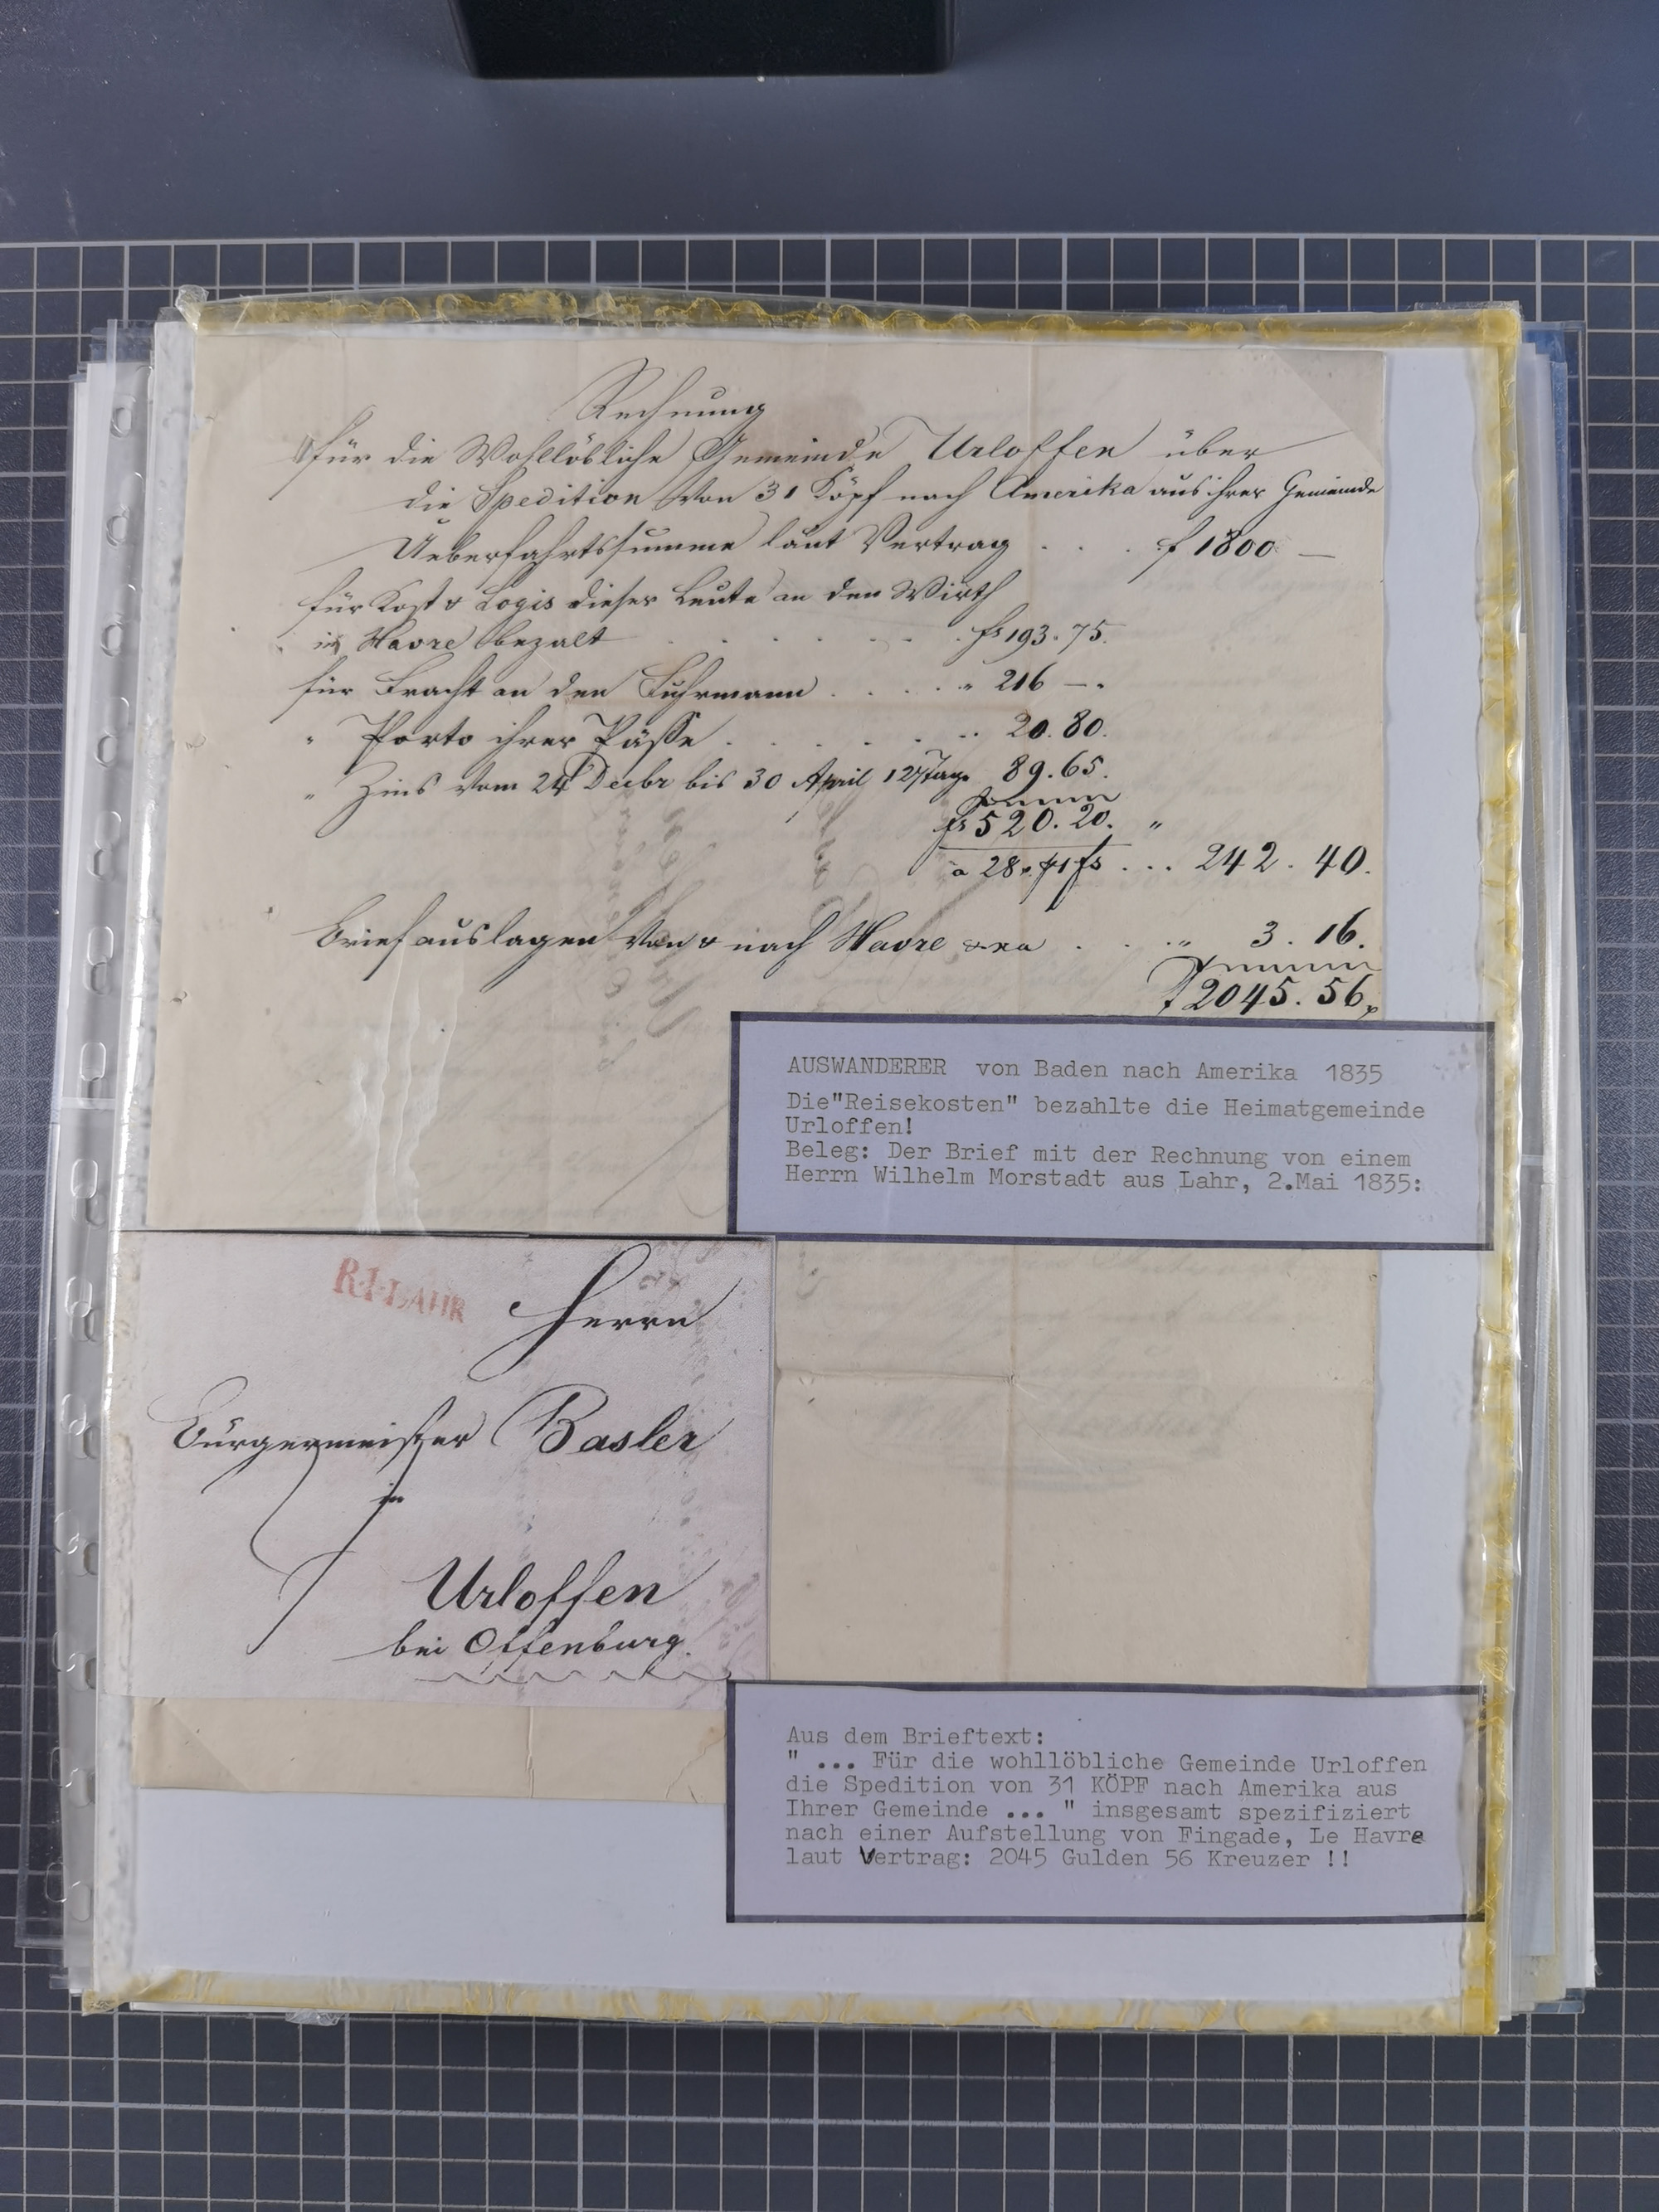 Rechnung
für die Wohllöbliche Gemeinde Urloffen über
die Spedition von 31 Köpf nach Amerika aus ihrer Gemeinde
Ueberfahrtssumme laut Vertrag . . . f 1800 —
für Kost & Logis dieser Leute an den Wirth
in Havre bezalt . . . . . . . fs 193.75.
für Fracht an den Fuhrmann . . . . . " 216 — .
" Porto ihrer Pässe . . . . . . . 20.80.
" Zins vom 24 Decbr bis 30 April 127 Tage 89.65.
fs 520.20. "
a 28 x 1 fs ... 242.40.
Briefauslagen von & nach Havre . . . " 3.16.
f 2045.56
AUSWANDERER von Baden nach Amerika 1835
Die"Reisekosten" bezahlte die Heimatgemeinde
Urloffen!
Beleg: Der Brief mit der Rechnung von einem
Herrn Wilhelm Morstadt aus Lahr, 2.Mai 1835:
R.1.LAHR
Herrn
Bürgermeister Basler
in
Urloffen
bei Offenburg.
Aus dem Brieftext:
" ... Für die wohllöbliche Gemeinde Urloffen
die Spedition von 31 KÖPF nach Amerika aus
Ihrer Gemeinde ... " insgesamt spezifiziert
nach einer Aufstellung von Fingade, Le Havre
laut Vertrag: 2045 Gulden 56 Kreuzer !!